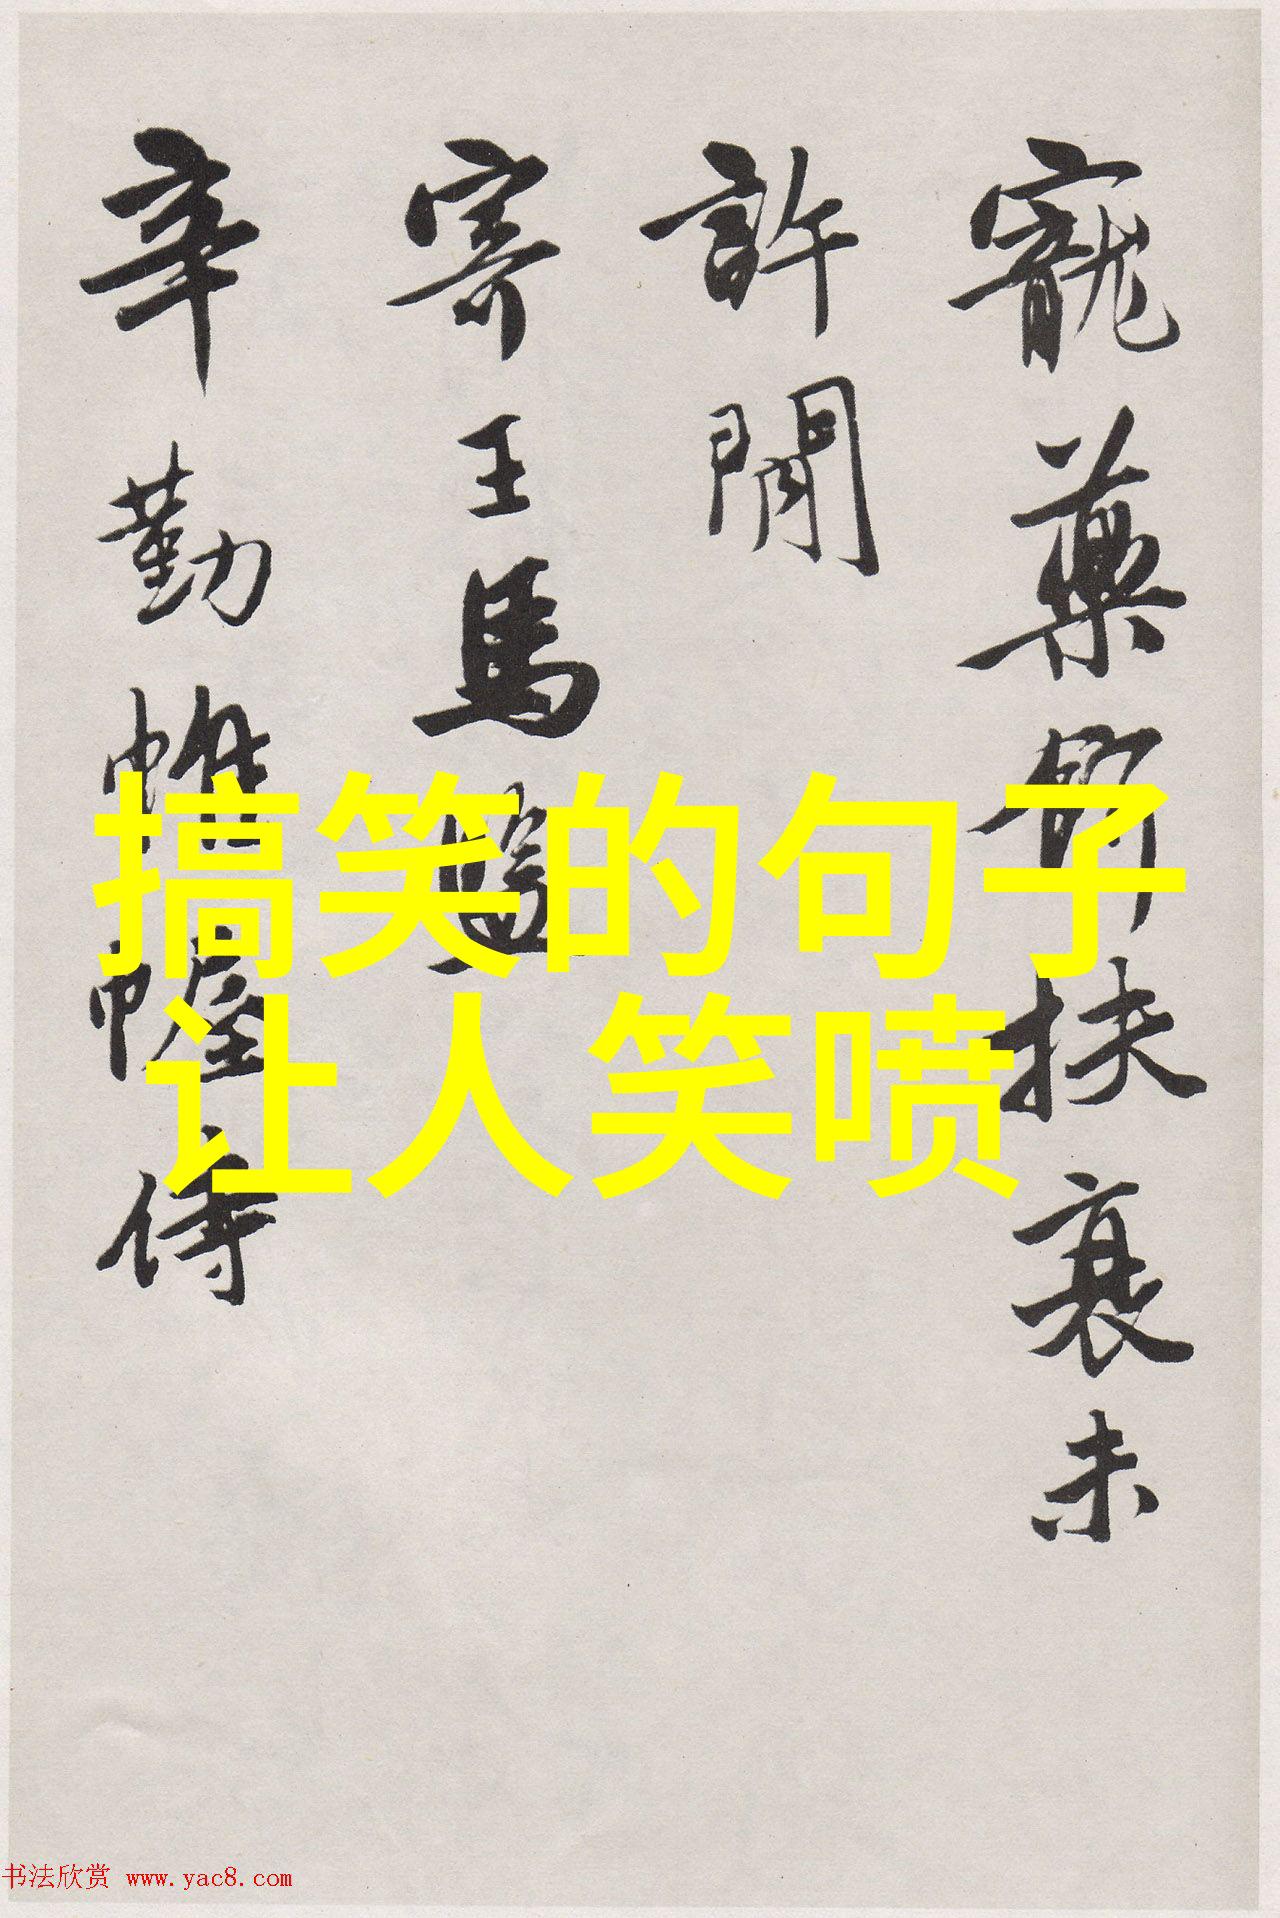 寵藥扶衰未
許閒
寄王馬監
辛勤帷幄侍
搞笑的句子
让人笑喷
书法欣赏 www.yac8.com